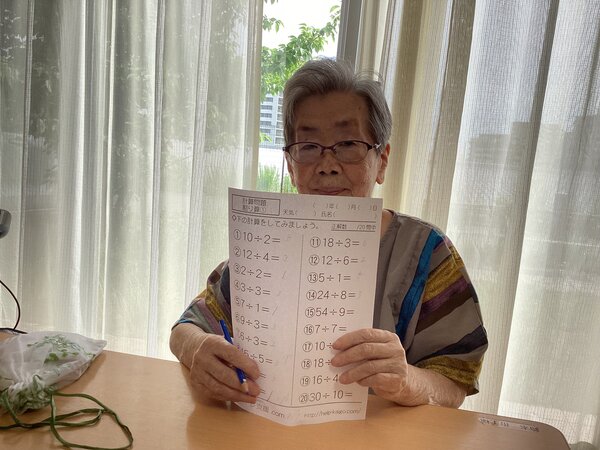 計算問題
割り算①
( )年( )月( )日
天気( ) 氏名( )
◎下の計算をしてみましょう。
正解数 /20問中
①10÷2=
②12÷4=
③2÷2=
④3÷3=
⑤7÷1=
⑥9÷3=
5÷5=
⑪18÷3=
⑫12÷6=
⑬5÷1=
⑭24÷8=
⑮54÷9=
⑯7÷7=
⑰10÷
⑱18÷
⑲16÷4
⑳30÷10=